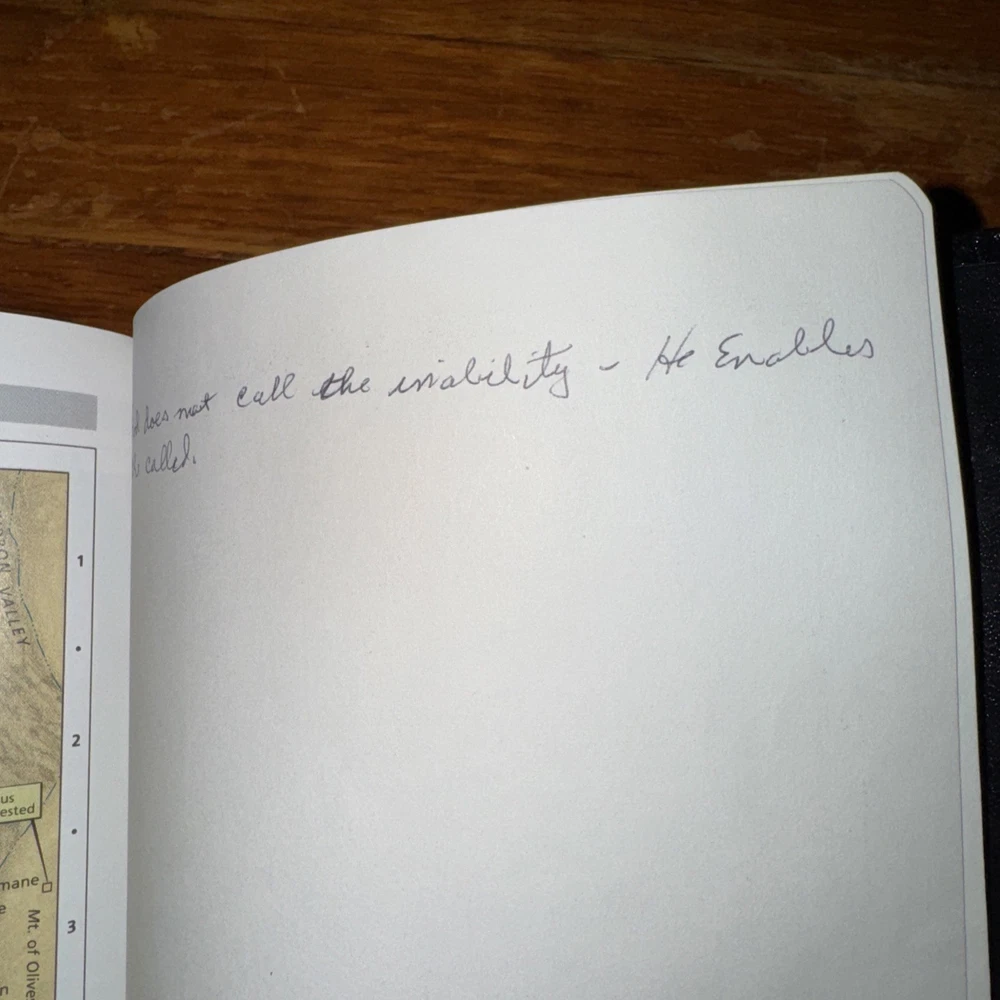 d does not call the inability - He Enables
called.
RON VALLEY
1
2
us
ested
mane
e
3
Mt. of Olive